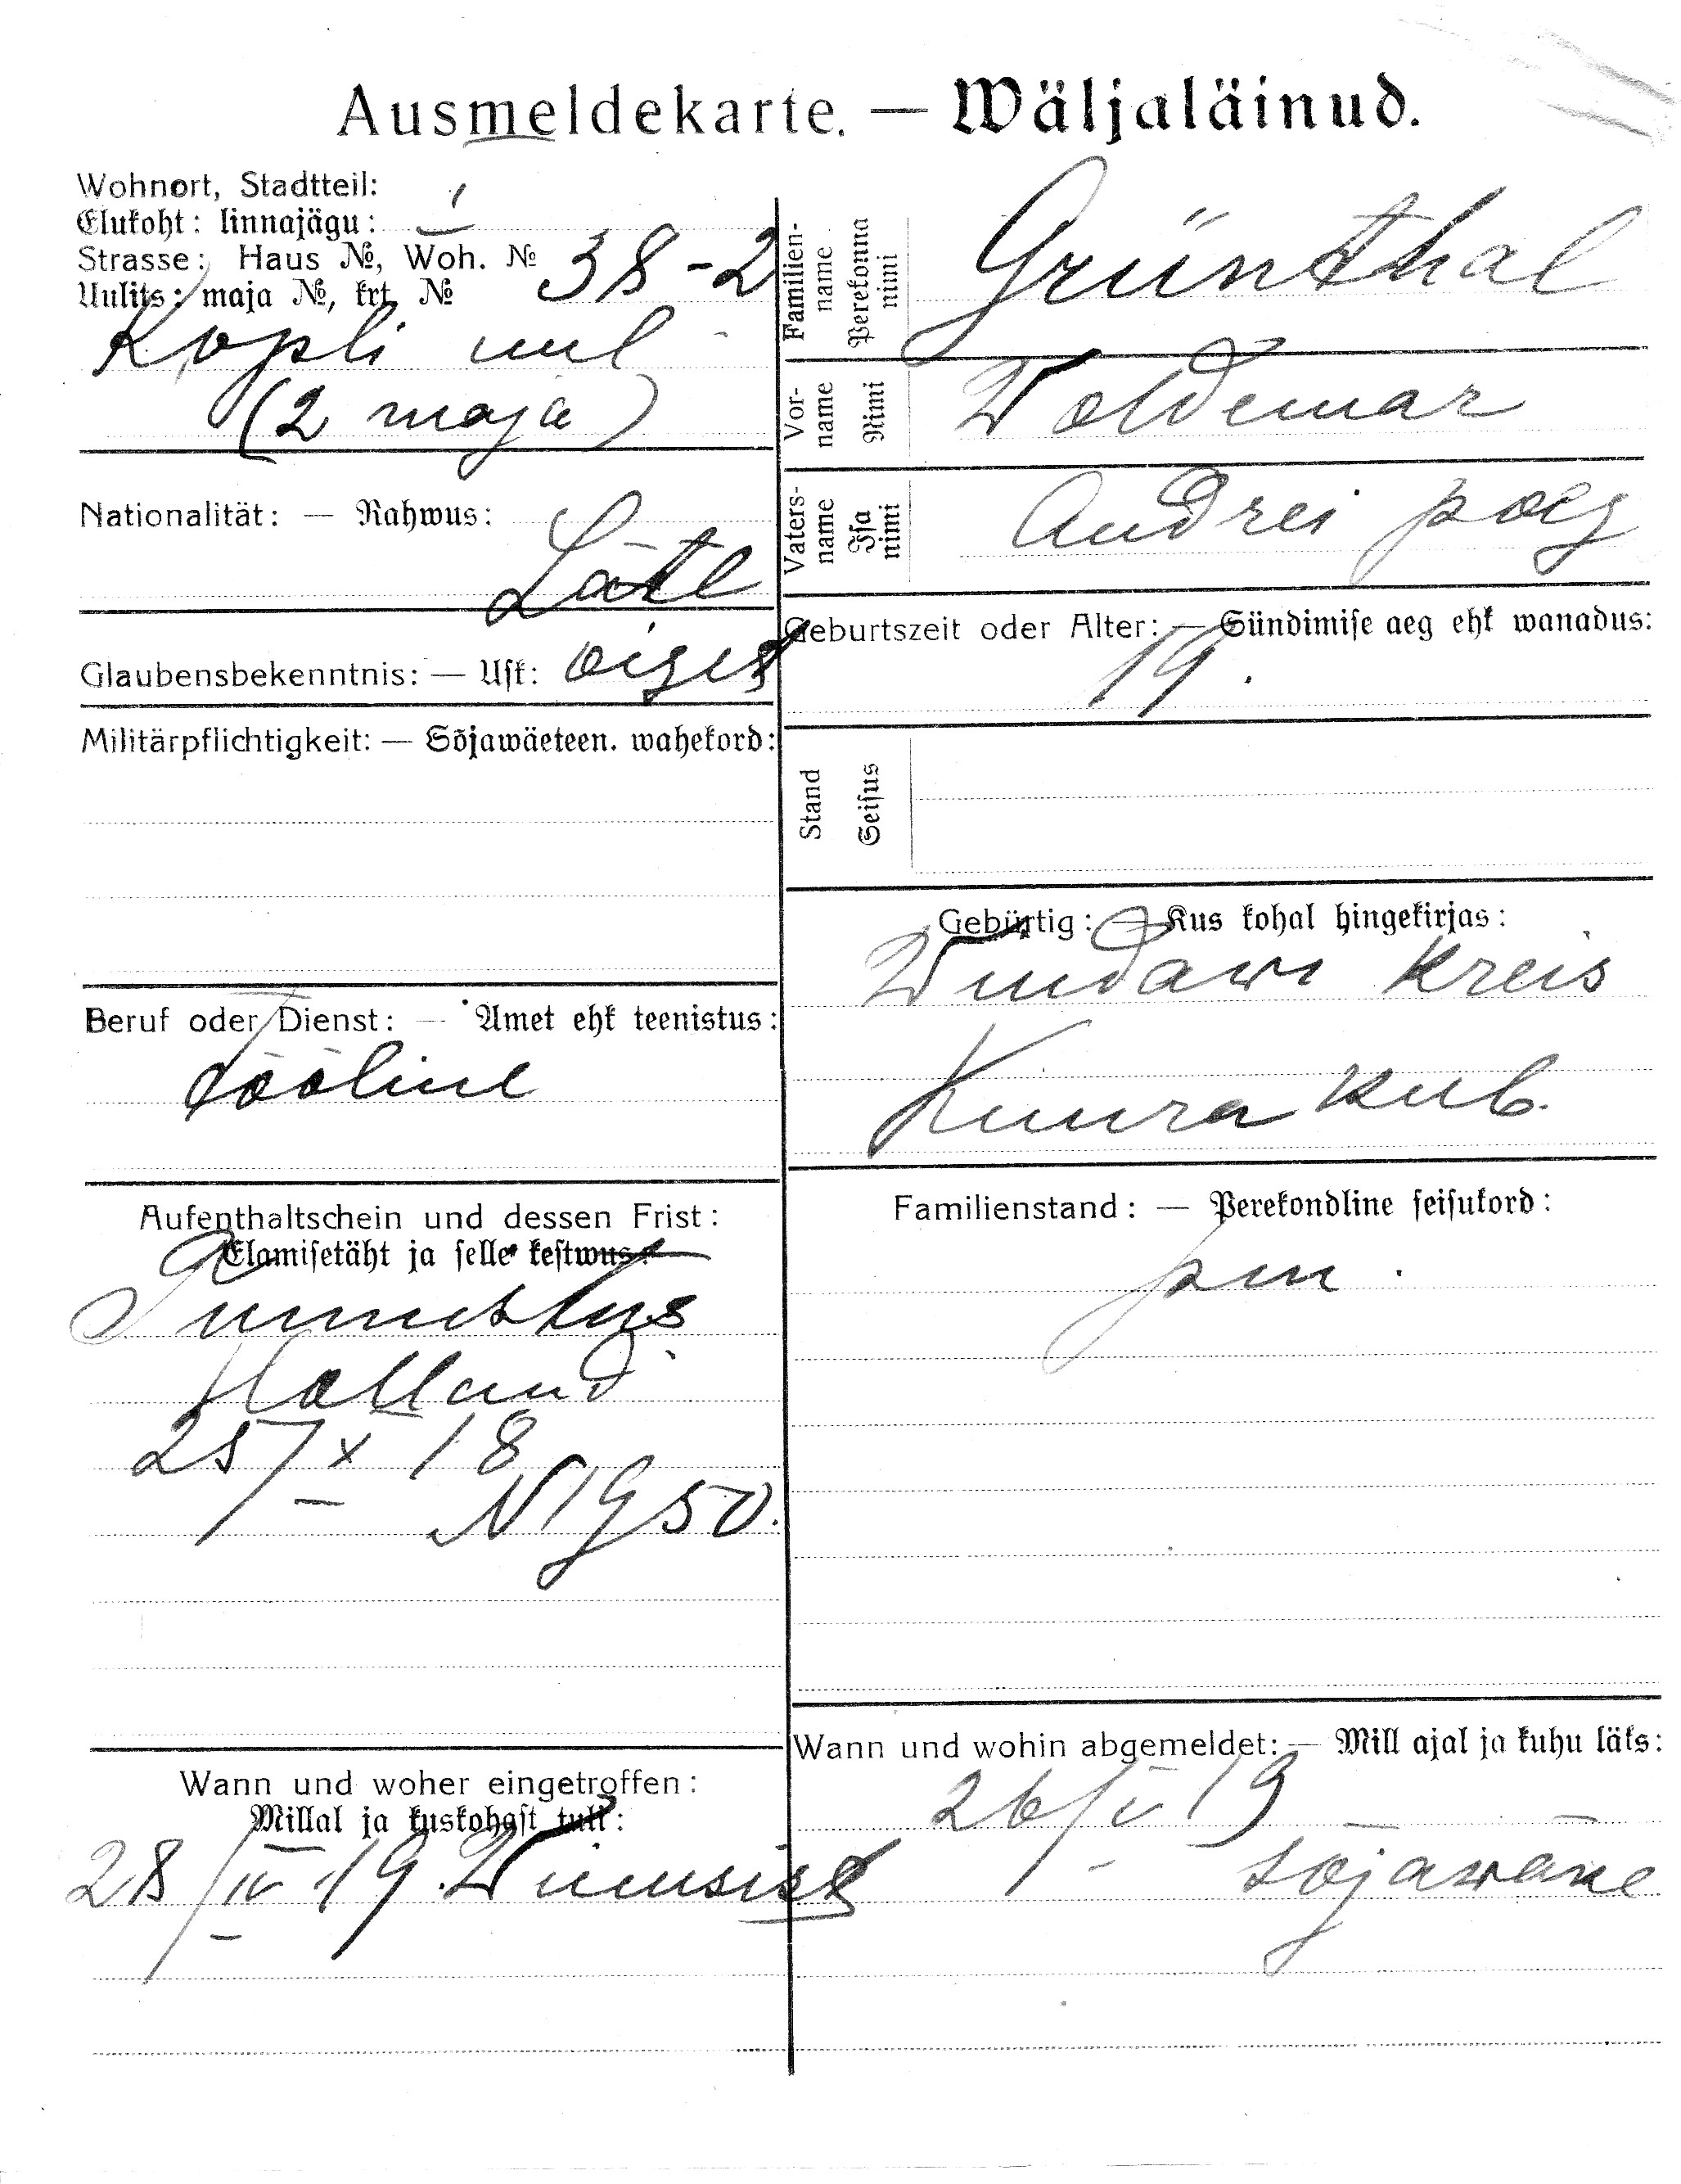 Ausmeldekarte. — Wäljaläinud.
Wohnort, Stadtteil:
Elukoht: linnajägu: I
Strasse: Haus №, Woh. №
Uulits: maja №, krt. № 38-2
Kopli uul
(2 maja)
Nationalität: — Rahwus:
Läte
Glaubensbekenntnis: — Usk: õigeus
Militärpflichtigkeit: — Sõjawäeteen. wahekord:
Beruf oder Dienst: — Amet ehk teenistus:
Tööline
Aufenthaltschein und dessen Frist:
Elamisetäht ja selle kestwus:
Tunnistus
Holland
25/X 18
N 1950.
Wann und woher eingetroffen:
Millal ja kuskohast tuli:
28/IV 19. Wiimsist
Familien-name Perekonna nimi Grünthal
Vor-name Nimi Woldemar
Vaters-name Isa nimi Andrei poeg
Geburtszeit oder Alter: — Sündimise aeg ehk wanadus:
19.
Stand Seisus
Gebürtig: — Kus kohal hingekirjas:
Windawi Kreis
Kuura kub.
Familienstand: — Perekondline seisukord:
pm.
Wann und wohin abgemeldet: — Mill ajal ja kuhu läks:
26/V 19
sõjawäke